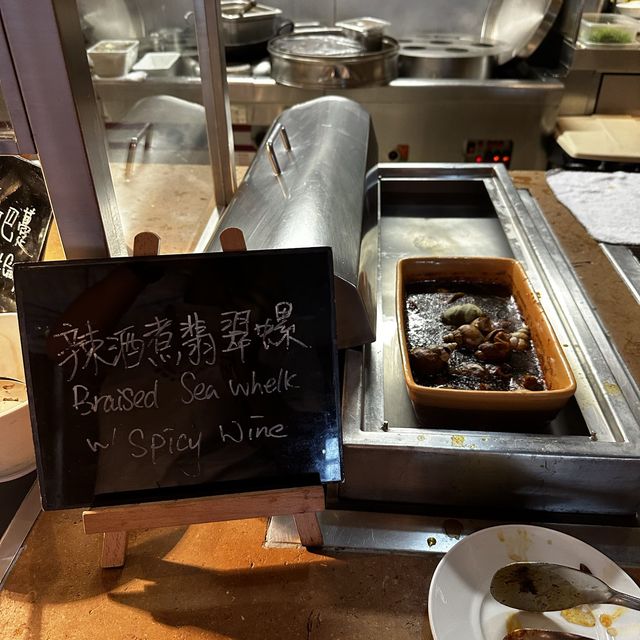 辣酒煮翡翠螺
Braised Sea Whelk
w/ Spicy Wine